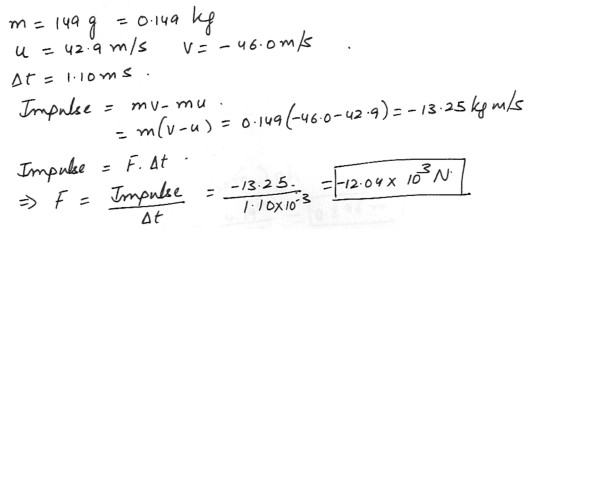 m = 149 g = 0.149 kg
u = 42.9 m/s v = - 46.0 m/s .
Δt = 1.10 ms .
Impulse = mv - mu .
= m(v-u) = 0.149 (-46.0-42.9) = -13.25 kg m/s
Impulse = F. Δt .
⇒ F = Impulse / Δt = -13.25. / 1.10×10^-3 = -12.04 × 10^3 N.